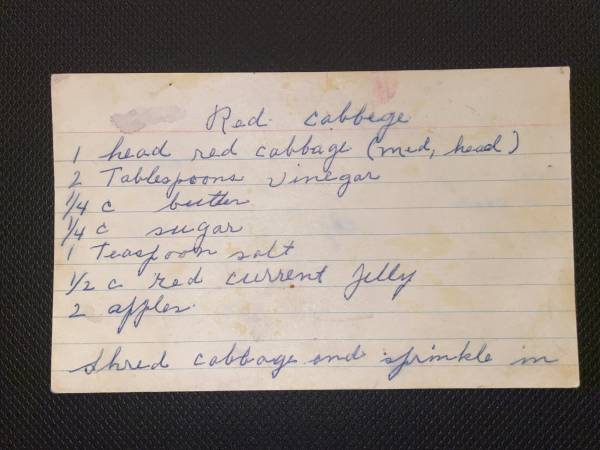 Red cabbege
1 head red cabbage (med, head)
2 Tablespoons vinegar
1/4 c butter
1/4 c sugar
1 Teaspoon salt
1/2 c red current Jelly
2 apples.
Shred cabbage and sprinkle in